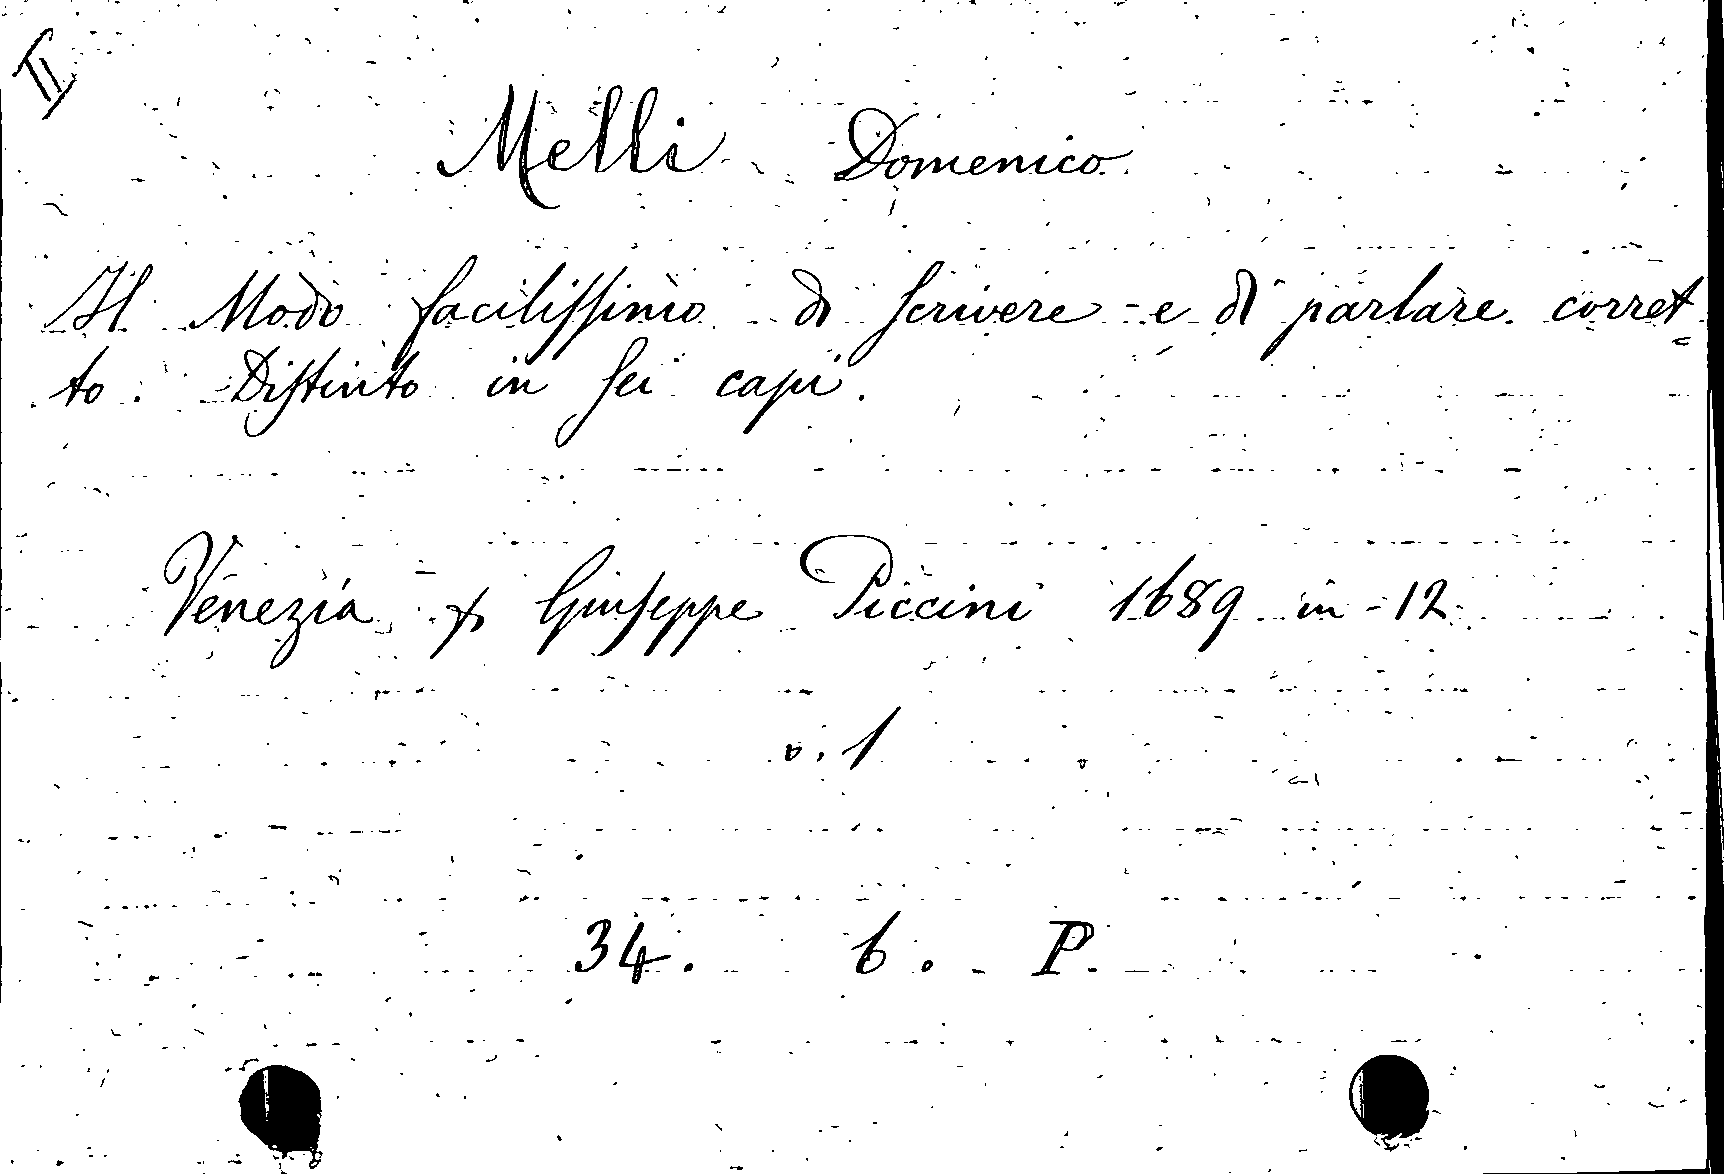 II
Melli Domenico
Il Modo faciliſſimo di ſcrivere e di parlare corret=
to. Diſtinto in ſei capi.
Venezia p Giuſeppe Piccini 1689 in-12
v. 1
34. 6. P.